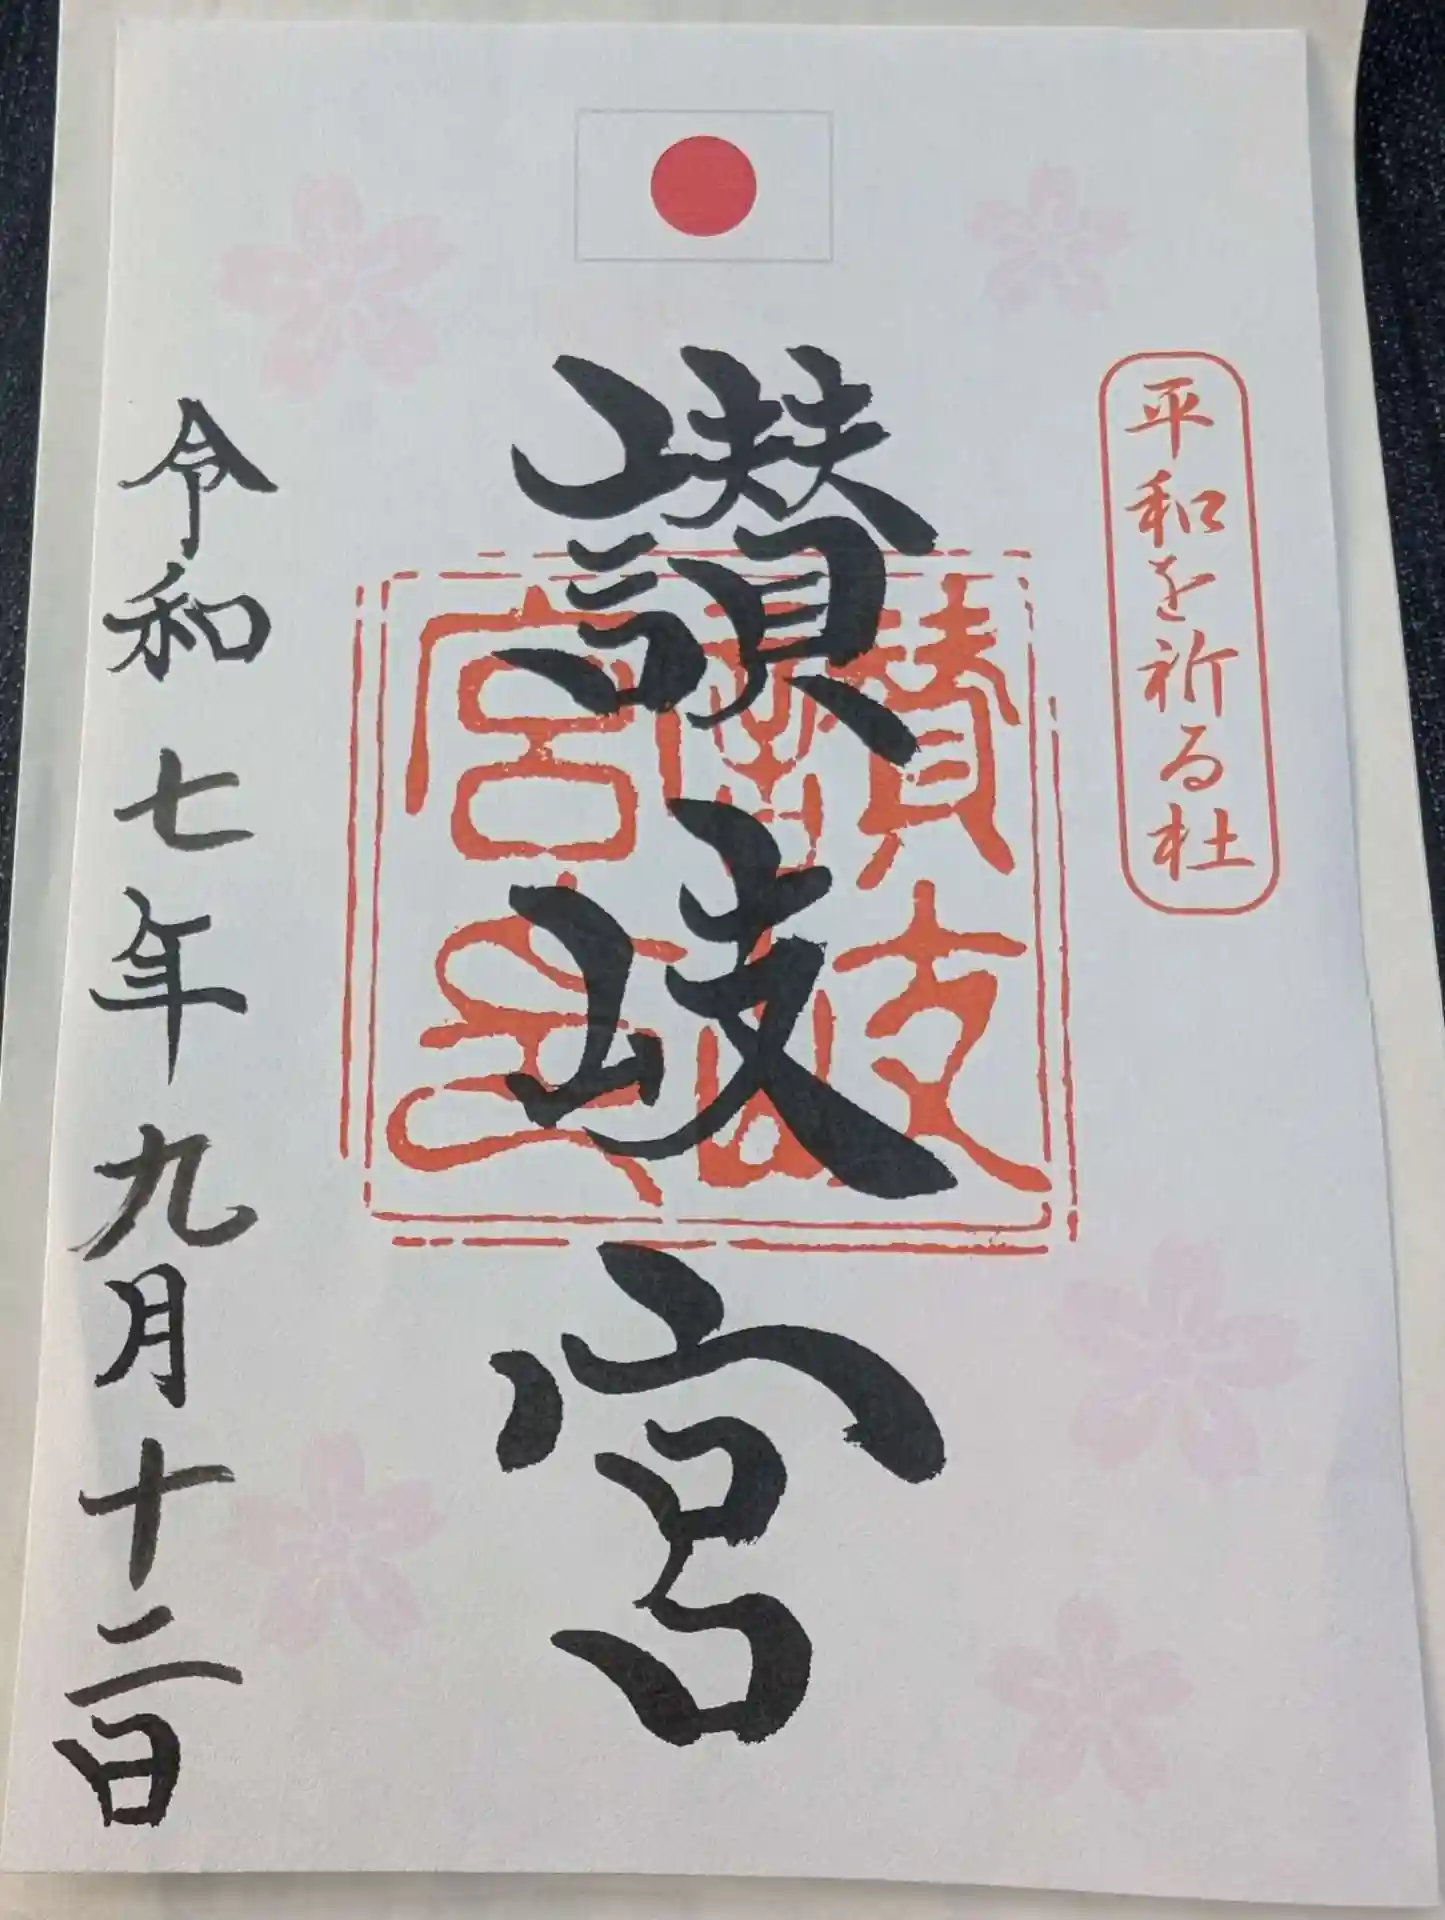 平和を祈る杜
讃岐宮
令和七年九月十二日